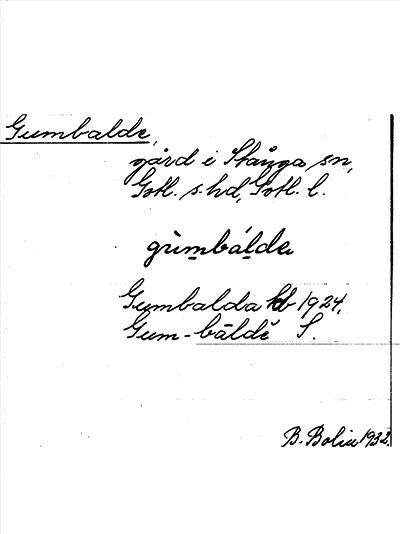 Gumbalde,
gård i Stånga sn,
Gotl. s. hd, Gotl. l.
gùmbálda
Gumbalda kb 1924.
Gum-bāldĕ S.
B. Bolin 1932.